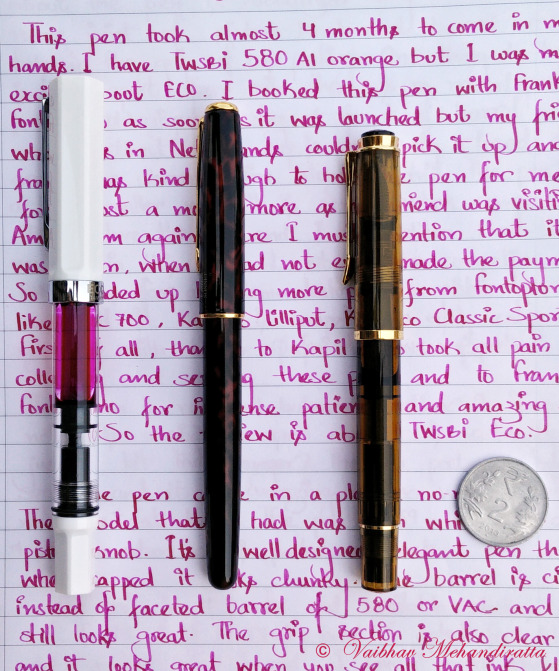 This pen took almost 4 months to come in m
hands. I have TWSBI 580 Al orange but I was m
exci boot ECO. I booked this pen with Frank
Font as soo s it was launched but my fri
wh s in Ne ands could pick it up and
fra as kind gh to ho e pen for me
for st a mo more as iend was visiti
Am m again re I mus ention that it
was n, when ad not e made the paym
So ded up ng more from fontoplu
like 700, Ka Lilliput, K co Classic Spor
First all, than to Kapil took all pain
colle and se g these p and to fran
font ho for i nse patien and amazing
So the iew is ab TWSBI Eco.
e pen c e in a pl no-n
The odel that had was whi
pist knob. It's well designed elegant pen th
whe apped it ks chunky. e barrel is ci
instead of faceted barrel of 580 or VAC and
still looks great. The grip section is also clear
and it looks great when you see all that ink
2
© Vaibhav Mehandiratta